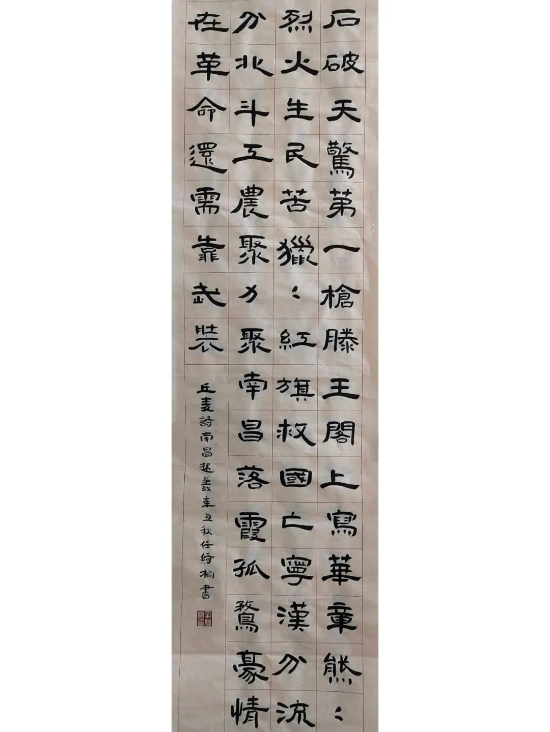 石破天驚第一槍滕王閣上寫華章熊〻
烈火生民苦獵〻紅旗救國亡寧漢分流
分北斗工農聚力聚南昌落霞孤鶩豪情
在革命還需靠武裝
丘麦詩南昌起義辛丑秋任绮桐書